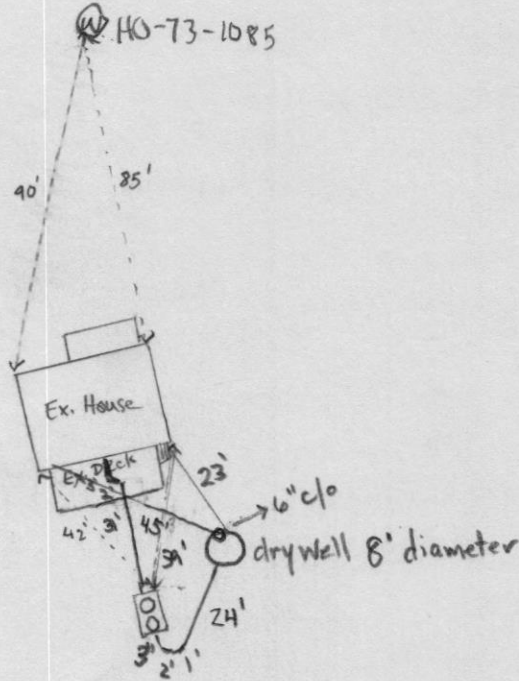 W HO-73-1085
90'
85'
Ex. House
Ex. Deck
23'
6" c/o
42'
31'
45'
39'
drywell 8' diameter
24'
3"
2' 1'